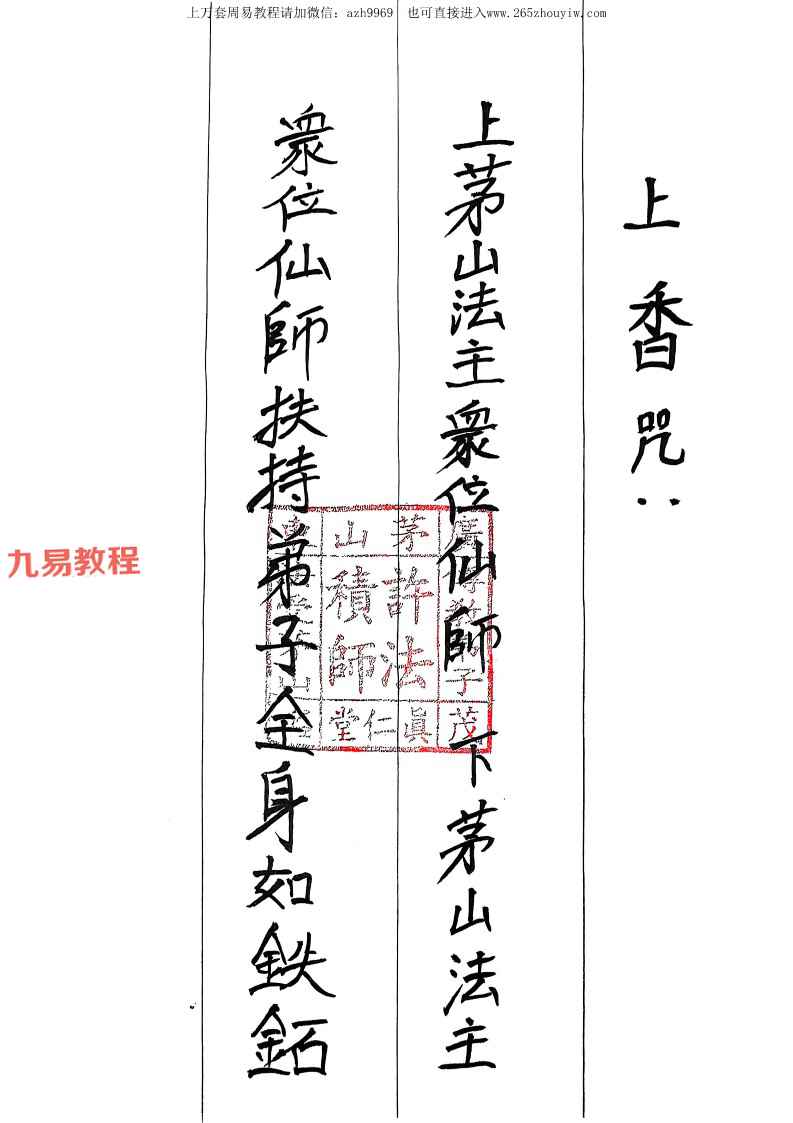 上万套周易教程请加微信：azh9969 也可直接进入www.265zhouyiw.com
上香咒：
上茅山法主衆位仙師 下茅山法主
衆位仙師扶持弟子全身如鉄鉐
九易教程
茅山
許法
積師
眞仁堂
廣
子
茂